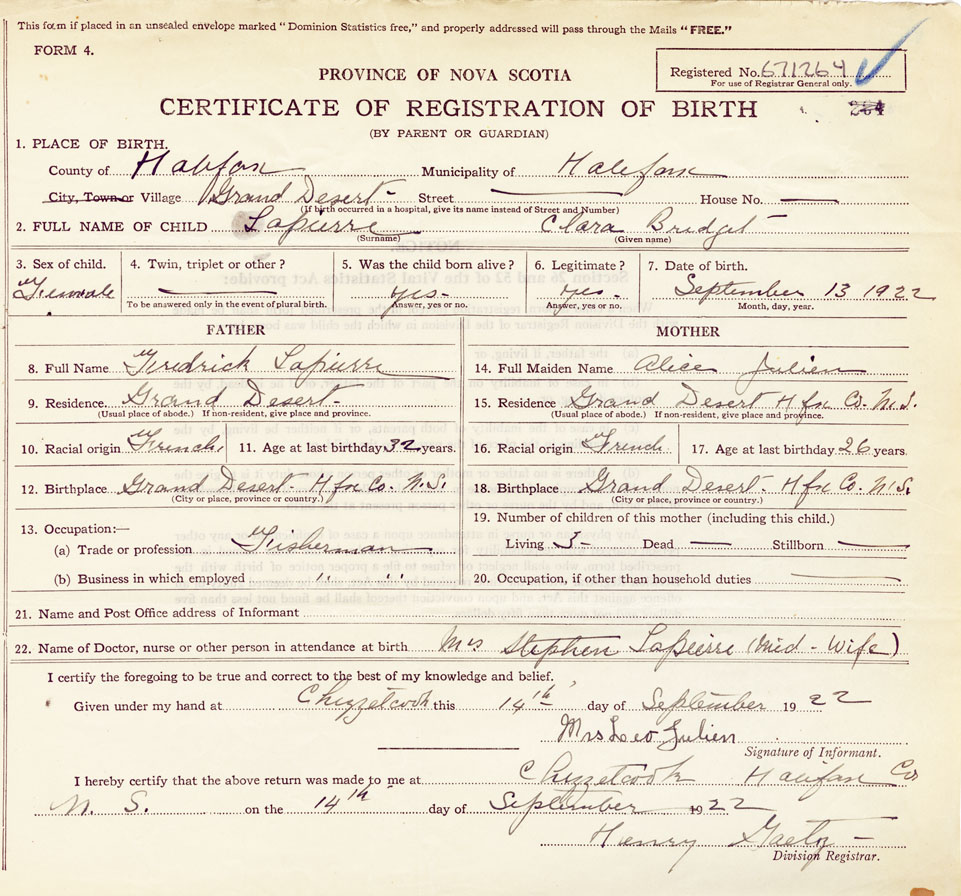 This form if placed in an unsealed envelope marked "Dominion Statistics free," and properly addressed will pass through the Mails "FREE."
FORM 4.
Registered No. 671264
For use of Registrar General only.
PROVINCE OF NOVA SCOTIA
CERTIFICATE OF REGISTRATION OF BIRTH
(BY PARENT OR GUARDIAN)
1. PLACE OF BIRTH.
County of Halifax Municipality of Halifax
City, Town or Village Grand Desert - Street — House No. —
(If birth occurred in a hospital, give its name instead of Street and Number)
2. FULL NAME OF CHILD Lapierre Clara Bridget
(Surname) (Given name)
3. Sex of child. 4. Twin, triplet or other? 5. Was the child born alive? 6. Legitimate? 7. Date of birth.
Female — yes - yes - September 13 1922
To be answered only in the event of plural birth. Answer, yes or no. Answer, yes or no. Month, day, year.
FATHER MOTHER
8. Full Name Fredrick Lapierre 14. Full Maiden Name Alice Julien
9. Residence Grand Desert - 15. Residence Grand Desert Hfx Co. N.S.
(Usual place of abode.) If non-resident, give place and province. (Usual place of abode.) If non-resident, give place and province.
10. Racial origin French, 11. Age at last birthday 32 years. 16. Racial origin French 17. Age at last birthday 26 years.
12. Birthplace Grand Desert - Hfx Co. N.S. 18. Birthplace Grand Desert - Hfx Co. N.S.
(City or place, province or country.) (City or place, province or country.)
13. Occupation:— 19. Number of children of this mother (including this child.)
(a) Trade or profession Fisherman Living Dead — Stillborn —
(b) Business in which employed " " 20. Occupation, if other than household duties —
21. Name and Post Office address of Informant
22. Name of Doctor, nurse or other person in attendance at birth Mrs Stephen Lapierre (Mid - Wife)
I certify the foregoing to be true and correct to the best of my knowledge and belief.
Given under my hand at Chezzetcook this 14th day of September 1922
Mrs Leo Julien
Signature of Informant.
I hereby certify that the above return was made to me at Chezzetcook Halifax Co
N. S. on the 14th day of September 1922
Henry Gaetz -
Division Registrar.